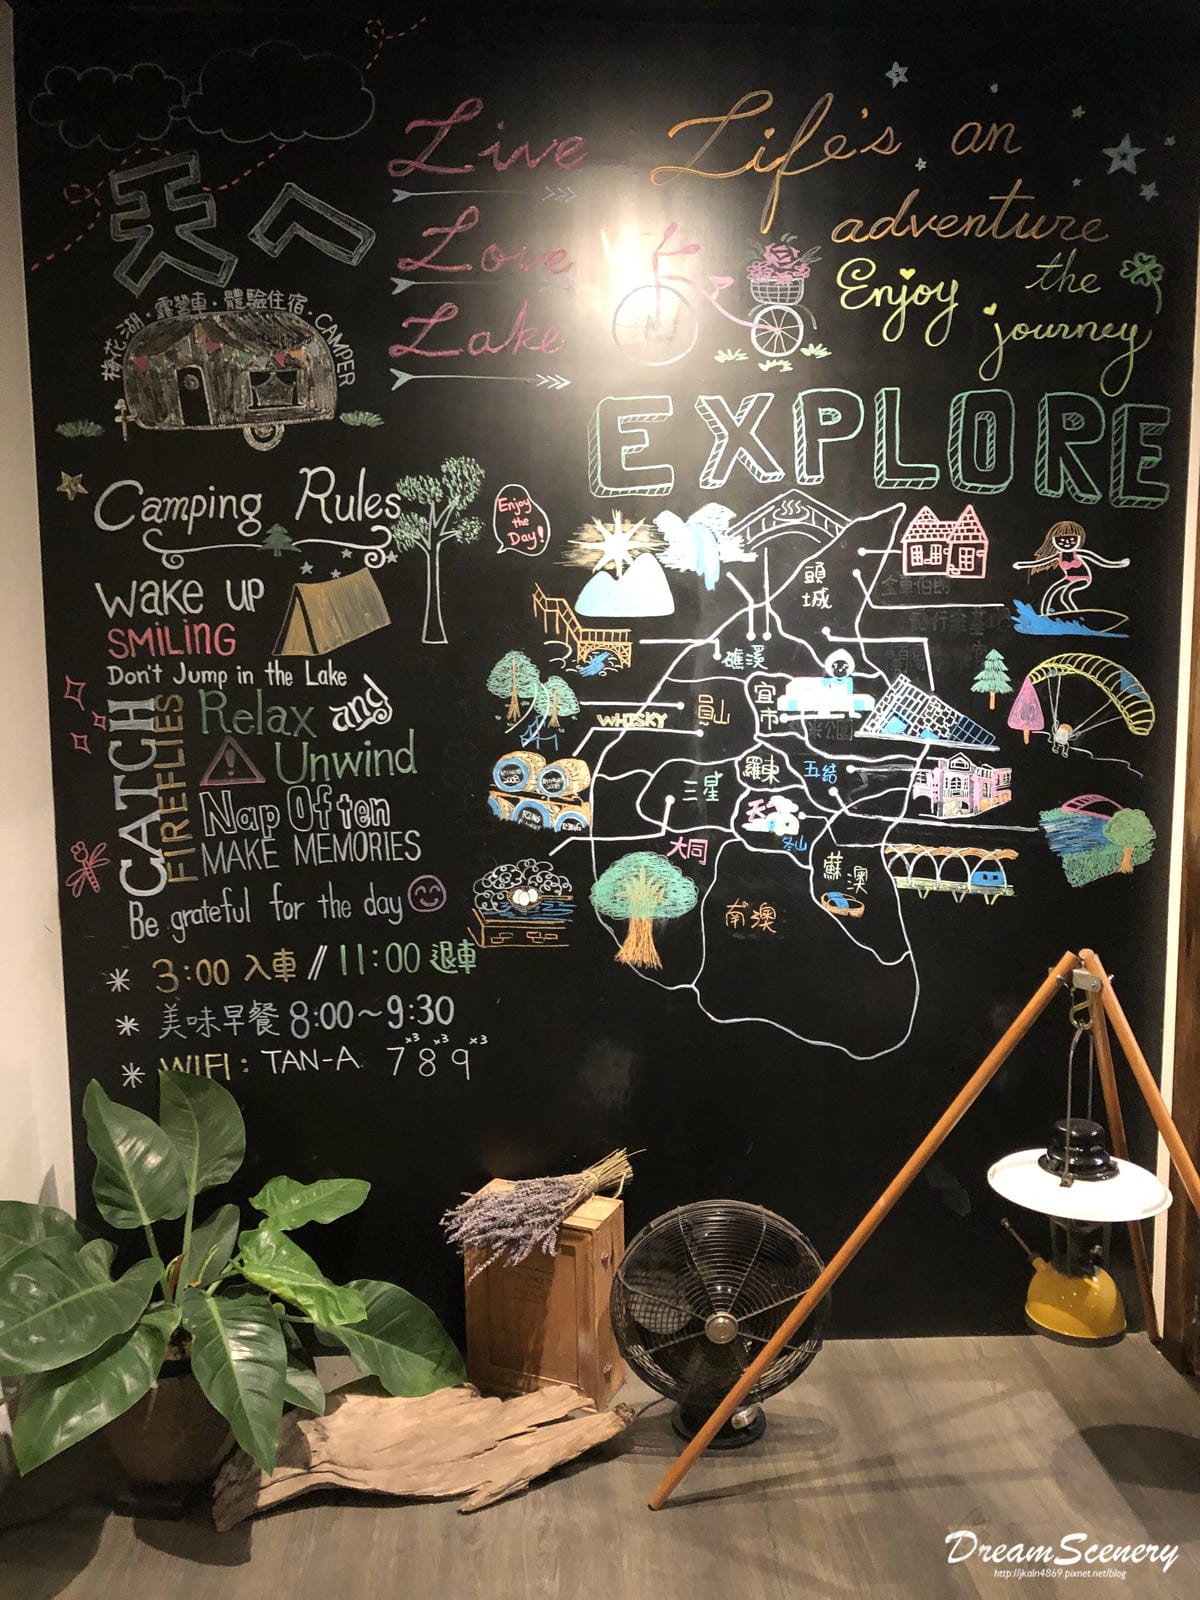 天ㄟ
梅花湖·露營車·體驗住宿·CAMPER
Live
Love
Lake
Life's an
adventure
Enjoy the
journey
EXPLORE
Camping Rules
WAKE UP
SMILING
Don't Jump in the Lake
CATCH
FIREFLIES
Relax and
Unwind
Nap Often
MAKE MEMORIES
Be grateful for the day
* 3:00 入車 // 11:00 退車
* 美味早餐 8:00~9:30
* WIFI: TAN-A 7x3 8x3 9x3
Enjoy
the
Day!
頭城
金車伯朗
礁溪
員山
宜市
WHISKY
三星
羅東
五結
天ㄟ
冬山
大同
蘇澳
南澳
DreamScenery
http://jkaln4869.pixnet.net/blog